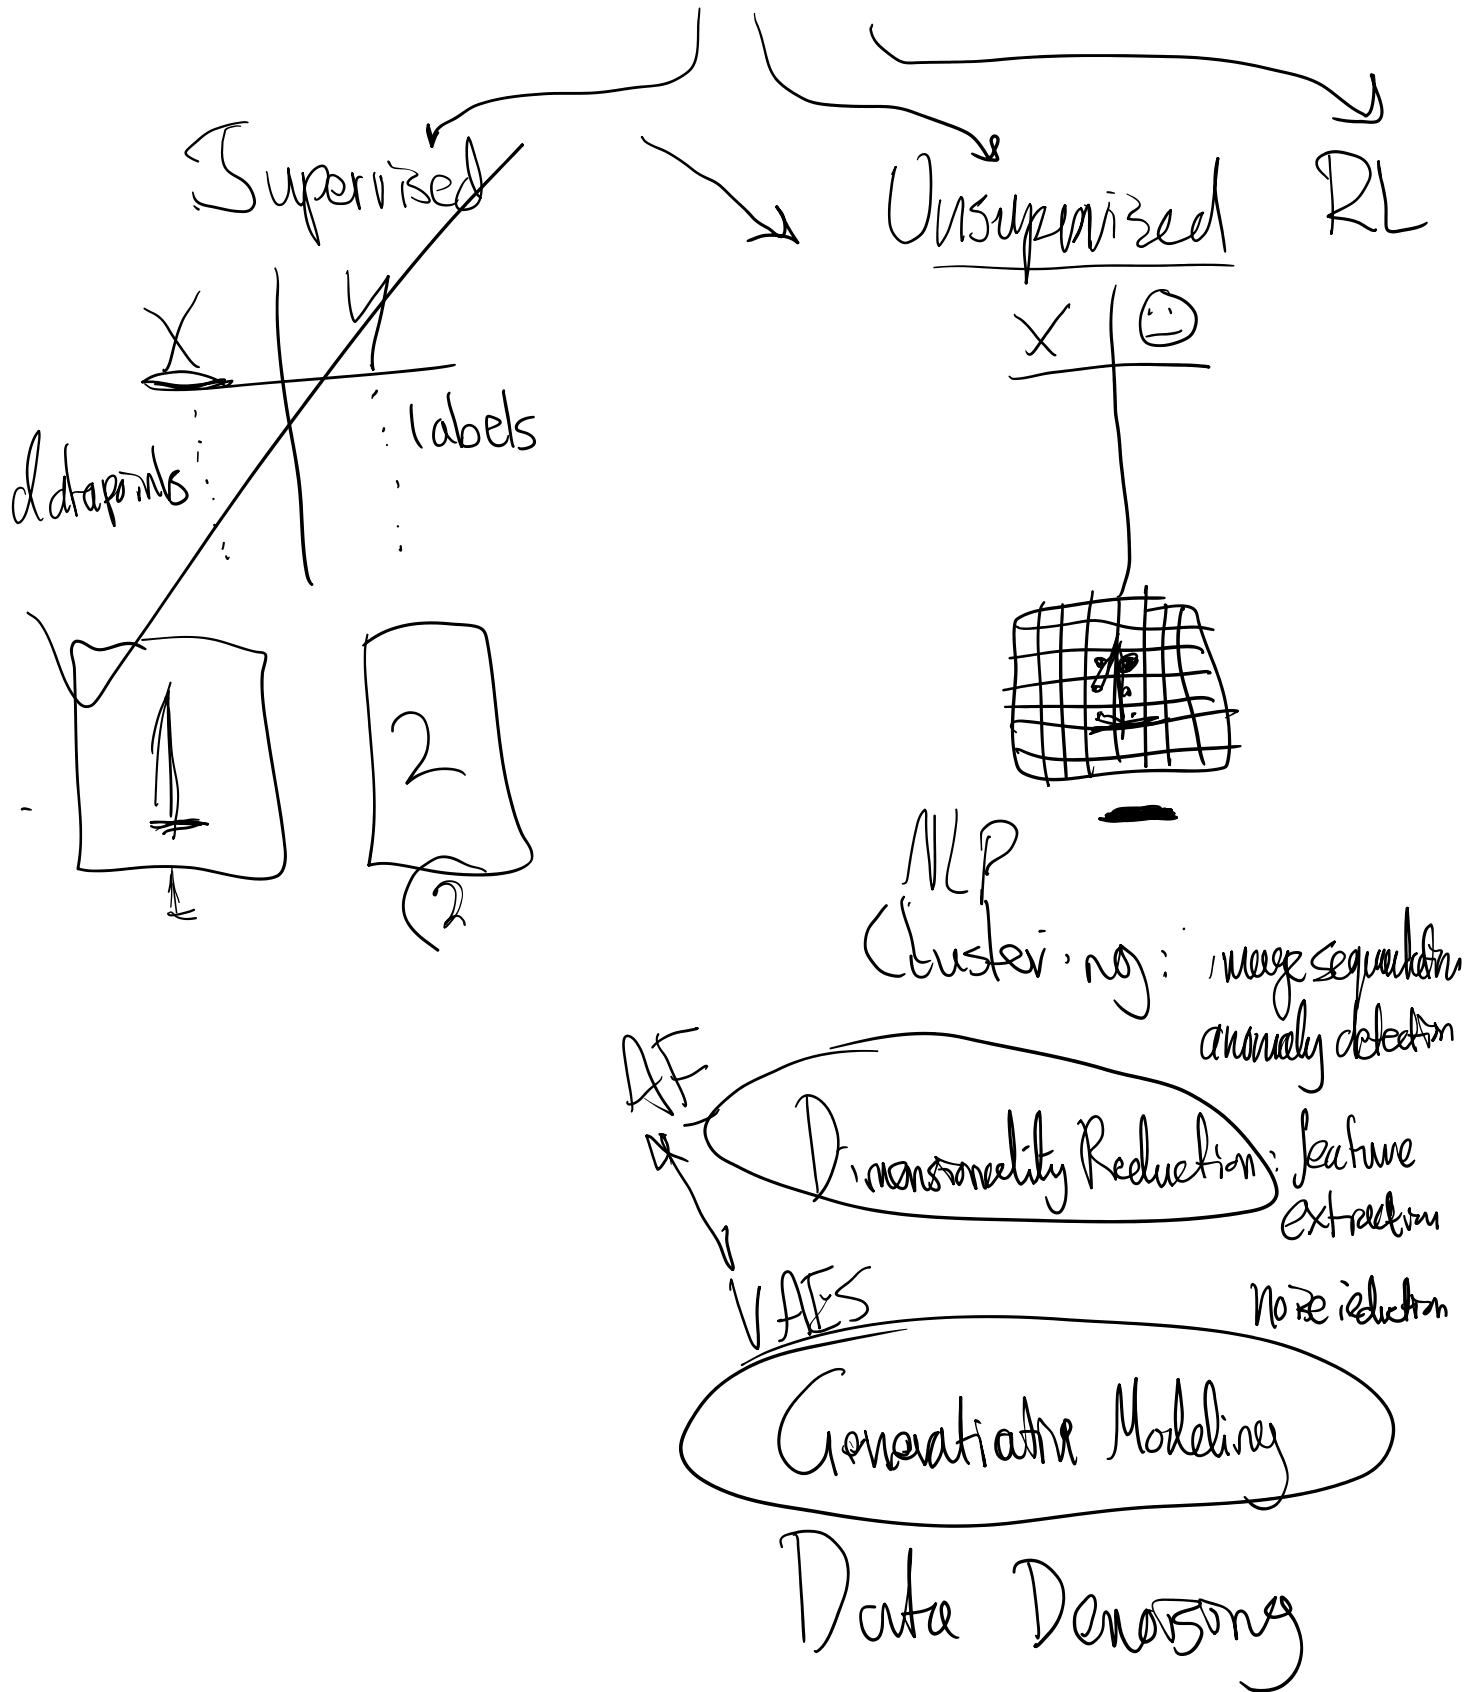 Supervised
Unsupervized
RL
X y
X
labels
datapoints
1 2
1 2
NLP
Clustering: image segmentation
anomaly detection
AE
Dimensionality Reduction: feature
extraction
VAES
noise reduction
Generatiative Modeling
Data Denoising